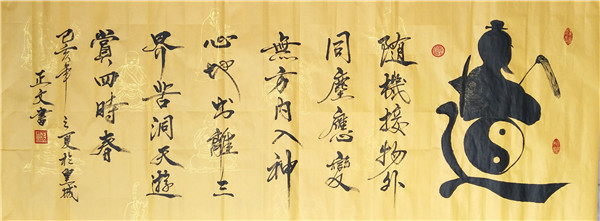 道
随機接物外
同塵應變
無方内入神
心地出離三
界苦洞天遊
賞四時春
己亥年之夏於皇城
正文書